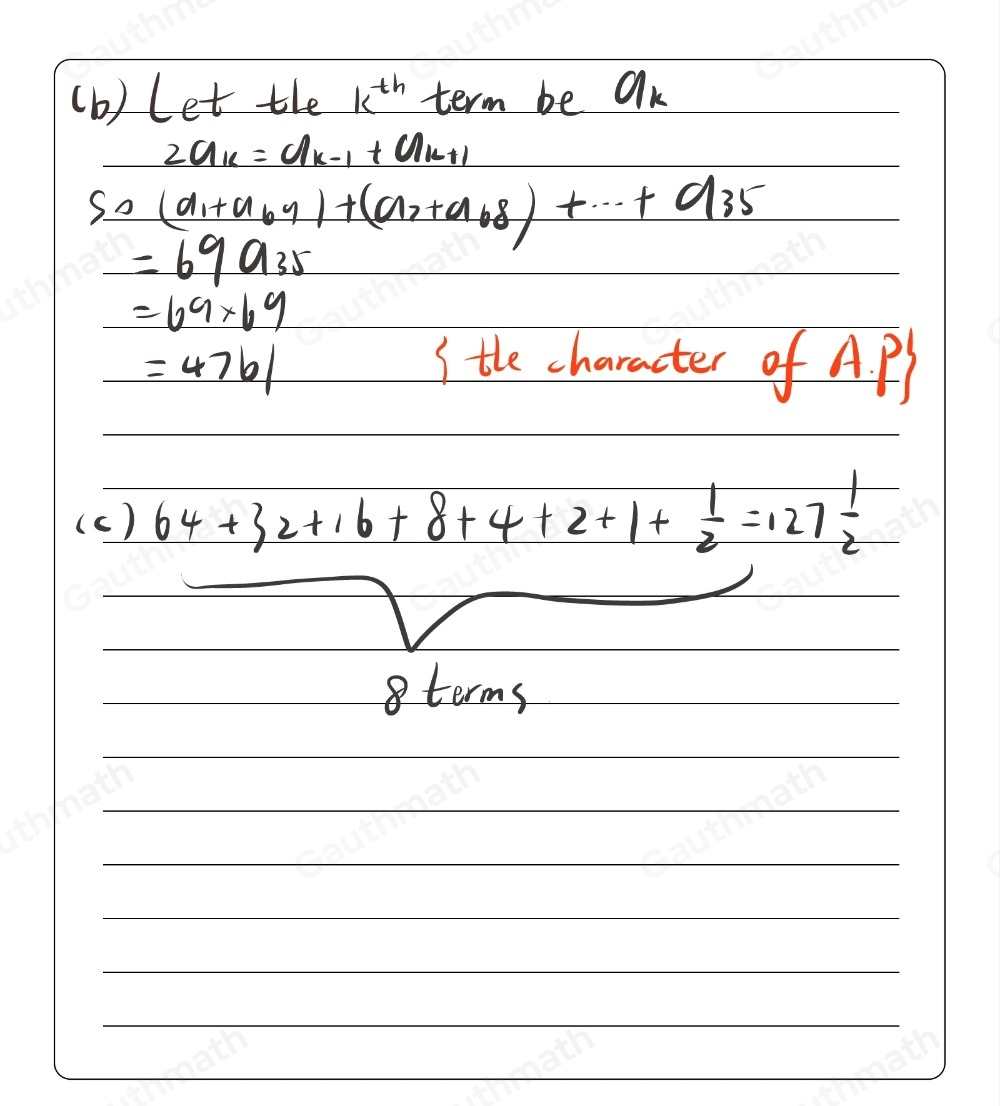 (b) Let the kth term be ak
2ak = ak-1 + ak+1
So (a1+a69)+(a2+a68)+...+a35
= 69a35
= 69×69
= 4761
{the character of A.P}
(c) 64+32+16+8+4+2+1+1/2=127 1/2
8 terms